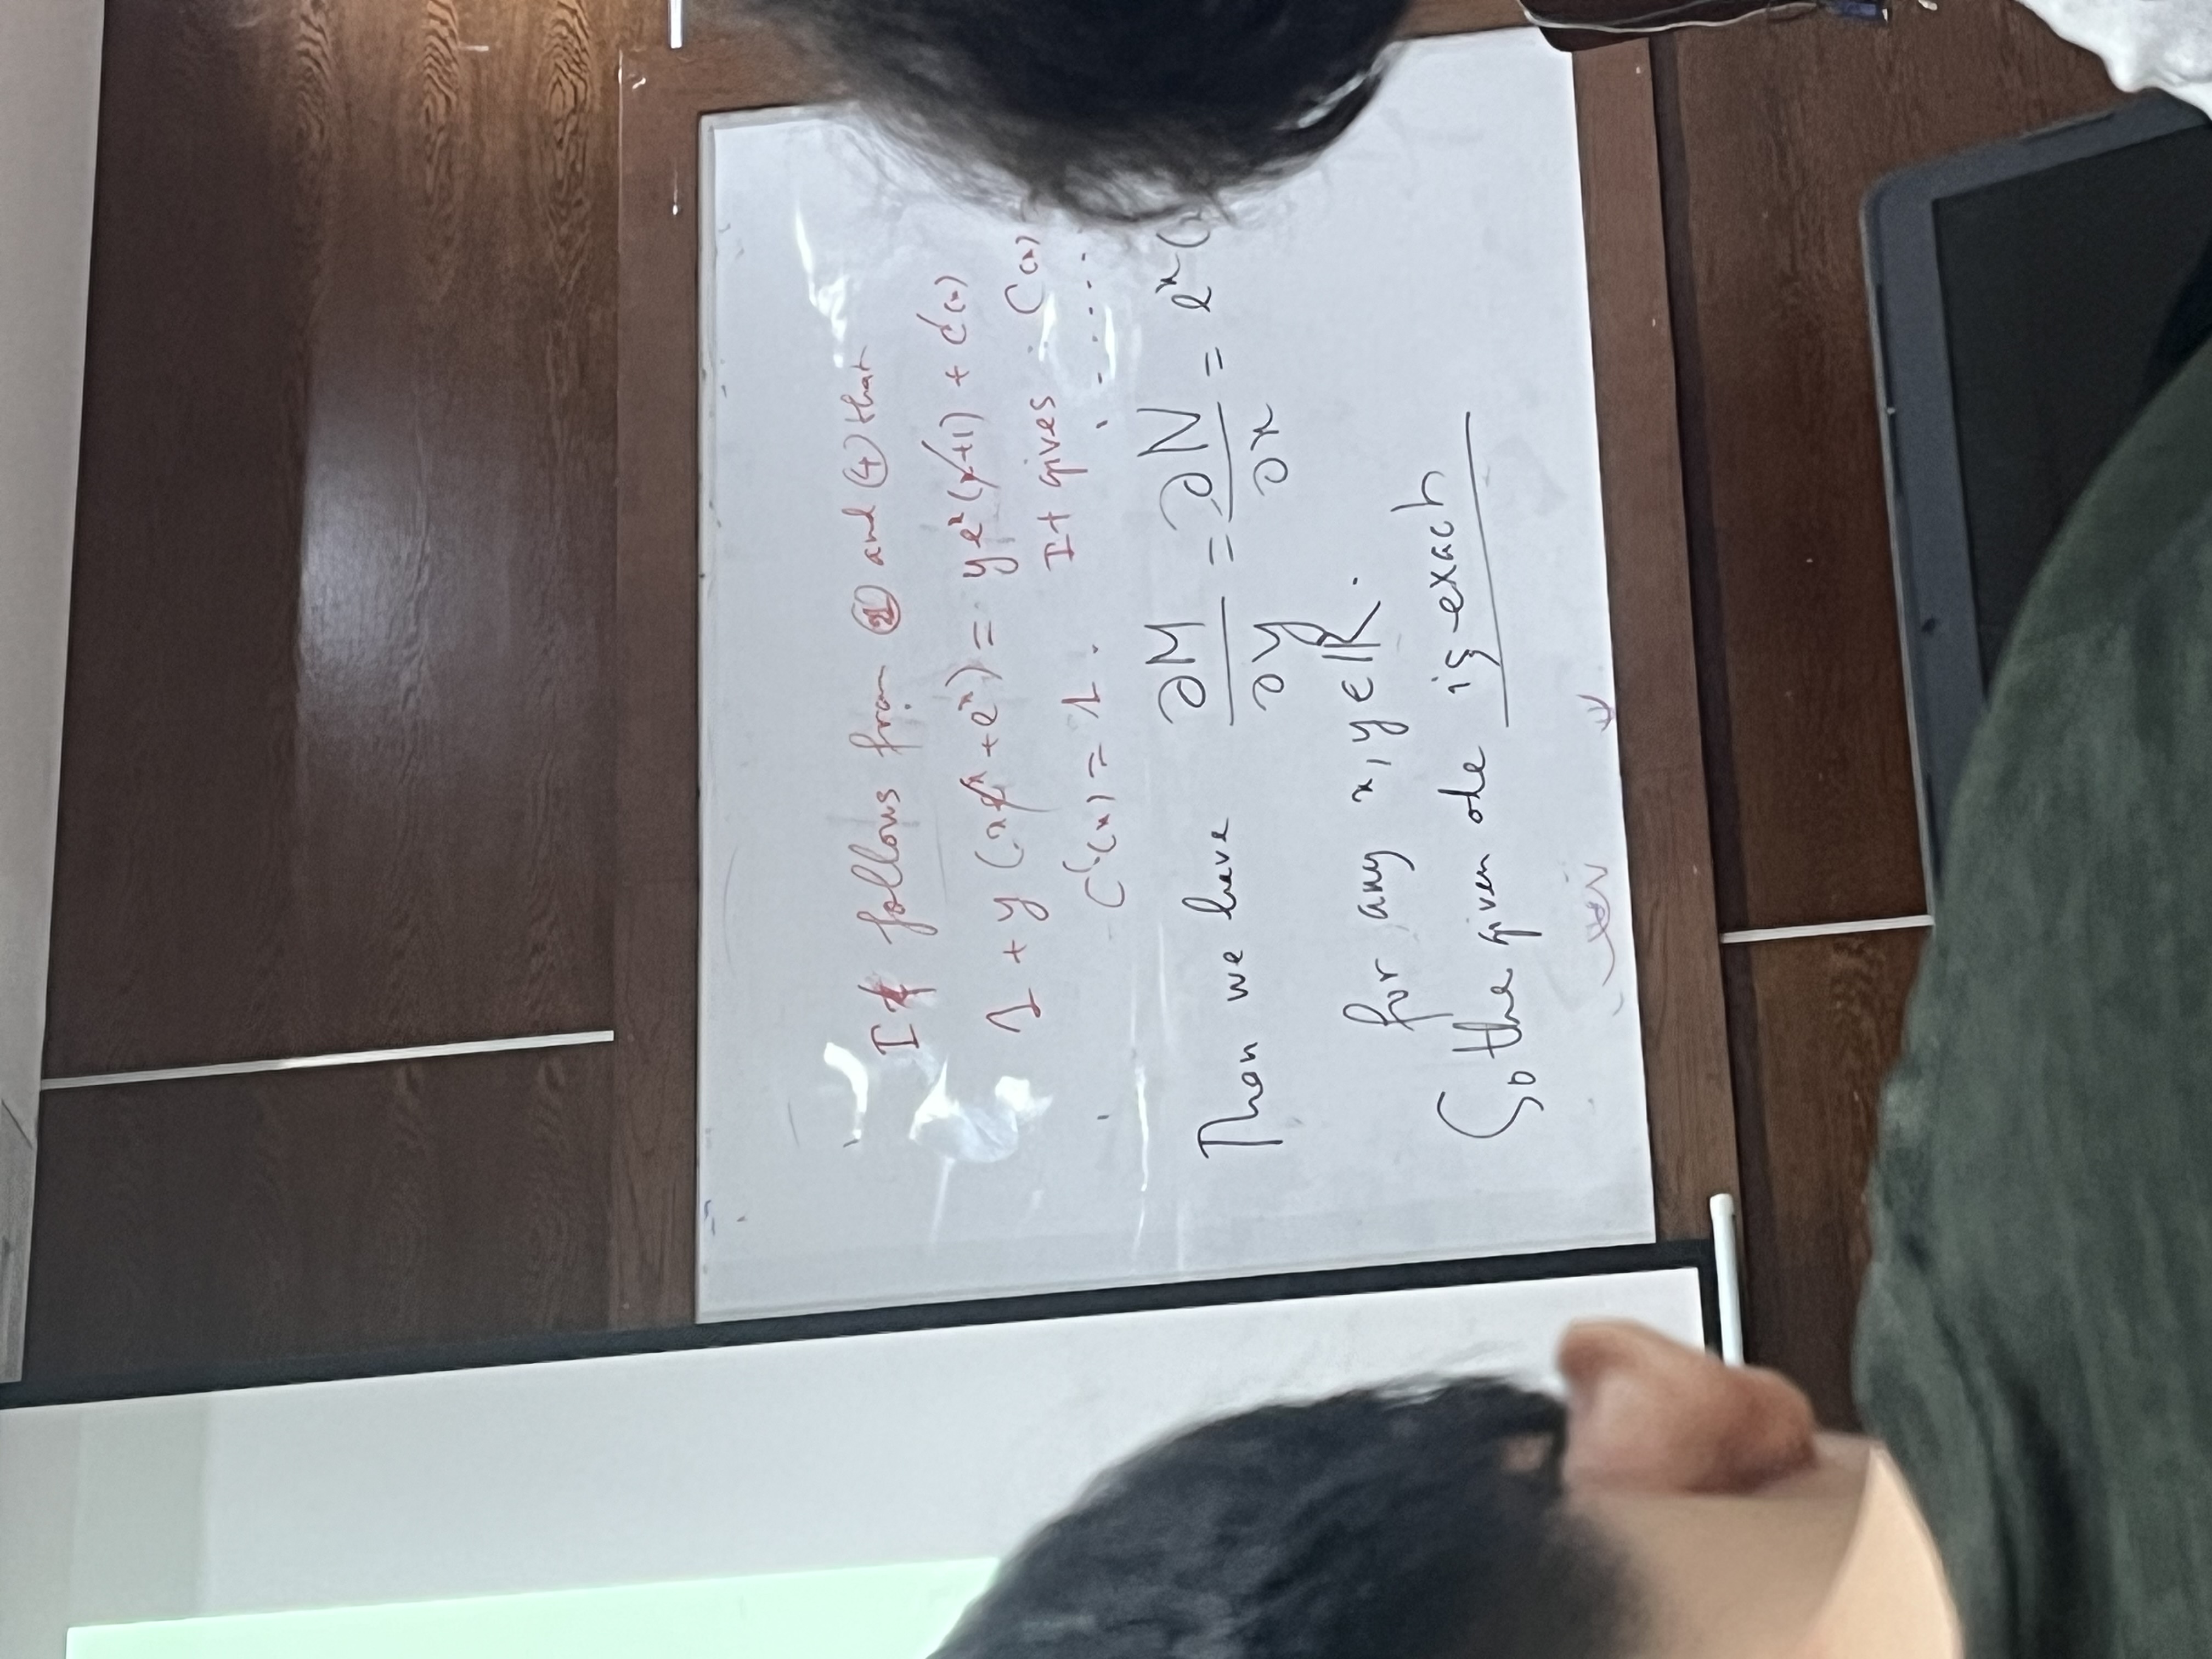 It follows from ② and ④ that
1 + y (xeˣ + eˣ) = yeˣ(x+1) + C'(x)
C'(x) = 1. It gives : C(x)
. . . . . .
Then we have ∂M/∂y = ∂N/∂x = eˣ(
for any x, y ∈ ℝ.
So the given ode is exach